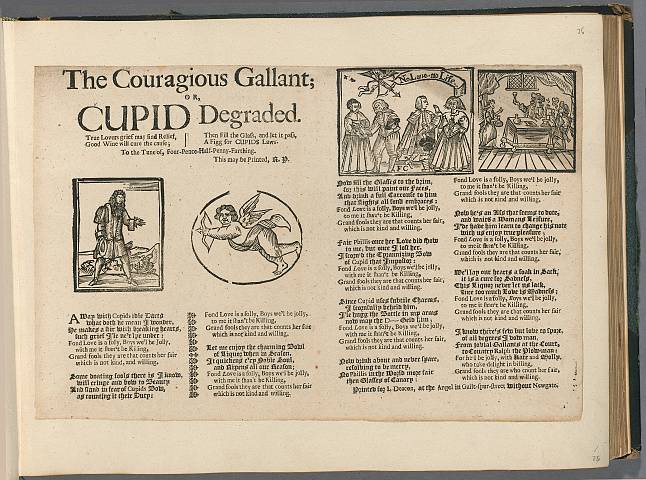 The Couragious Gallant;
OR,
CUPID Degraded.
True Lovers grief may find Relief,
Good Wine will cure the cause;
Then fill the Glass, and let it pass,
A Figg for CUPIDS Laws.
To the Tune of, Four-Pence-Half-Penny-Farthing.
This may be Printed, R. P.
No Love no Life
A Way with Cupids idle Darts
what doth he mean I wonder,
He makes a dir with breaking hearts,
such grief I'le ne'r lye under:
Fond Love is a folly, Boys we'l be jolly,
with me it shan't be Killing,
Grand fools they are that counts her fair
which is not kind, and willing.
Some doating fools there is I know,
will cringe and bow to Beauty
And stand in fear of Cupids Bow,
as counting it their Duty:
Fond Love is a folly, Boys we'l be jolly.
to me it shan't be Killing,
Grand fools they are that counts her fair
which is not kind and willing.
Let me enjoy the charming Bowl
of Rhino when in Season,
It quickens e'ry Noble Soul,
and Ripens all our Reason;
Fond Love is a Folly, Boys we'l be jolly,
with me it shan't be Killing,
Grand fools they are that counts her fair
which is not kind and willing.
Now fill the Glasses to the brim,
for this will paint our Faces,
And drink a full Carouse to him
that slights all fond embraces:
Fond Love is a folly, Boys we'l be jolly,
to me it shan't be Killing,
Grand fools they are that counts her fair,
which is not kind and willing.
Fair Phillis once her Love did show
to me, but once I lost her,
I scorn'd the Tyrannizing Bow
of Cupid that Impostor:
Fond Love is a folly, Boys we'l be jolly,
with me it shan't be Killing,
Grand fools they are that counts her fair,
which is not kind and willing.
Since Cupid uses subtile Charms,
I scornfully beheld him,
I'le hugg the Bottle in my arms
now may the D---- Geld him;
Fond Love is a folly, Boys we'l be jolly,
with me it shan't be Killing,
Grand fools they are that counts her fair,
which is not kind and willing.
Now drink about and never spare,
resolving to be merry,
No Phillis in the World more fair
then Glasses of Canary:
Fond Love is a folly, Boys we'l be jolly,
to me it shan't be Killing,
Grand fools they are that counts her fair
which is not kind and willing.
Now he's an Ass that seems to dote,
and waits a Womans Leisure,
I've have him learn to change his note
with us enjoy true pleasure;
Fond Love is a folly, Boys we'l be jolly,
to me it shan't be Killing,
Grand fools they are that counts her fair,
which is not kind and willing.
We'l lay our hearts a soak in Sack,
it is a cure for Sadness,
This Liquor never let us lack,
since too much Love is Madness;
Fond Love is a folly, Boys we'l be jolly,
with me it shan't be Killing,
Grand fools they are that counts her fair,
which is not kind and willing.
I know there's few but love to tope,
of all degrees I'd woman,
From jovial Gallants at the Court,
to Country Ralph the Plow-man:
For he'l be jolly, with Kate and Molly,
who take delight in billing,
Grand fools they are who count her fair,
which is not kind and willing.
Printed for J. Deacon, at the Angel in Guilt-spur-street without Newgate.